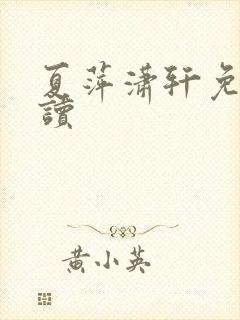 夏萍潇轩免
讀
黄小英